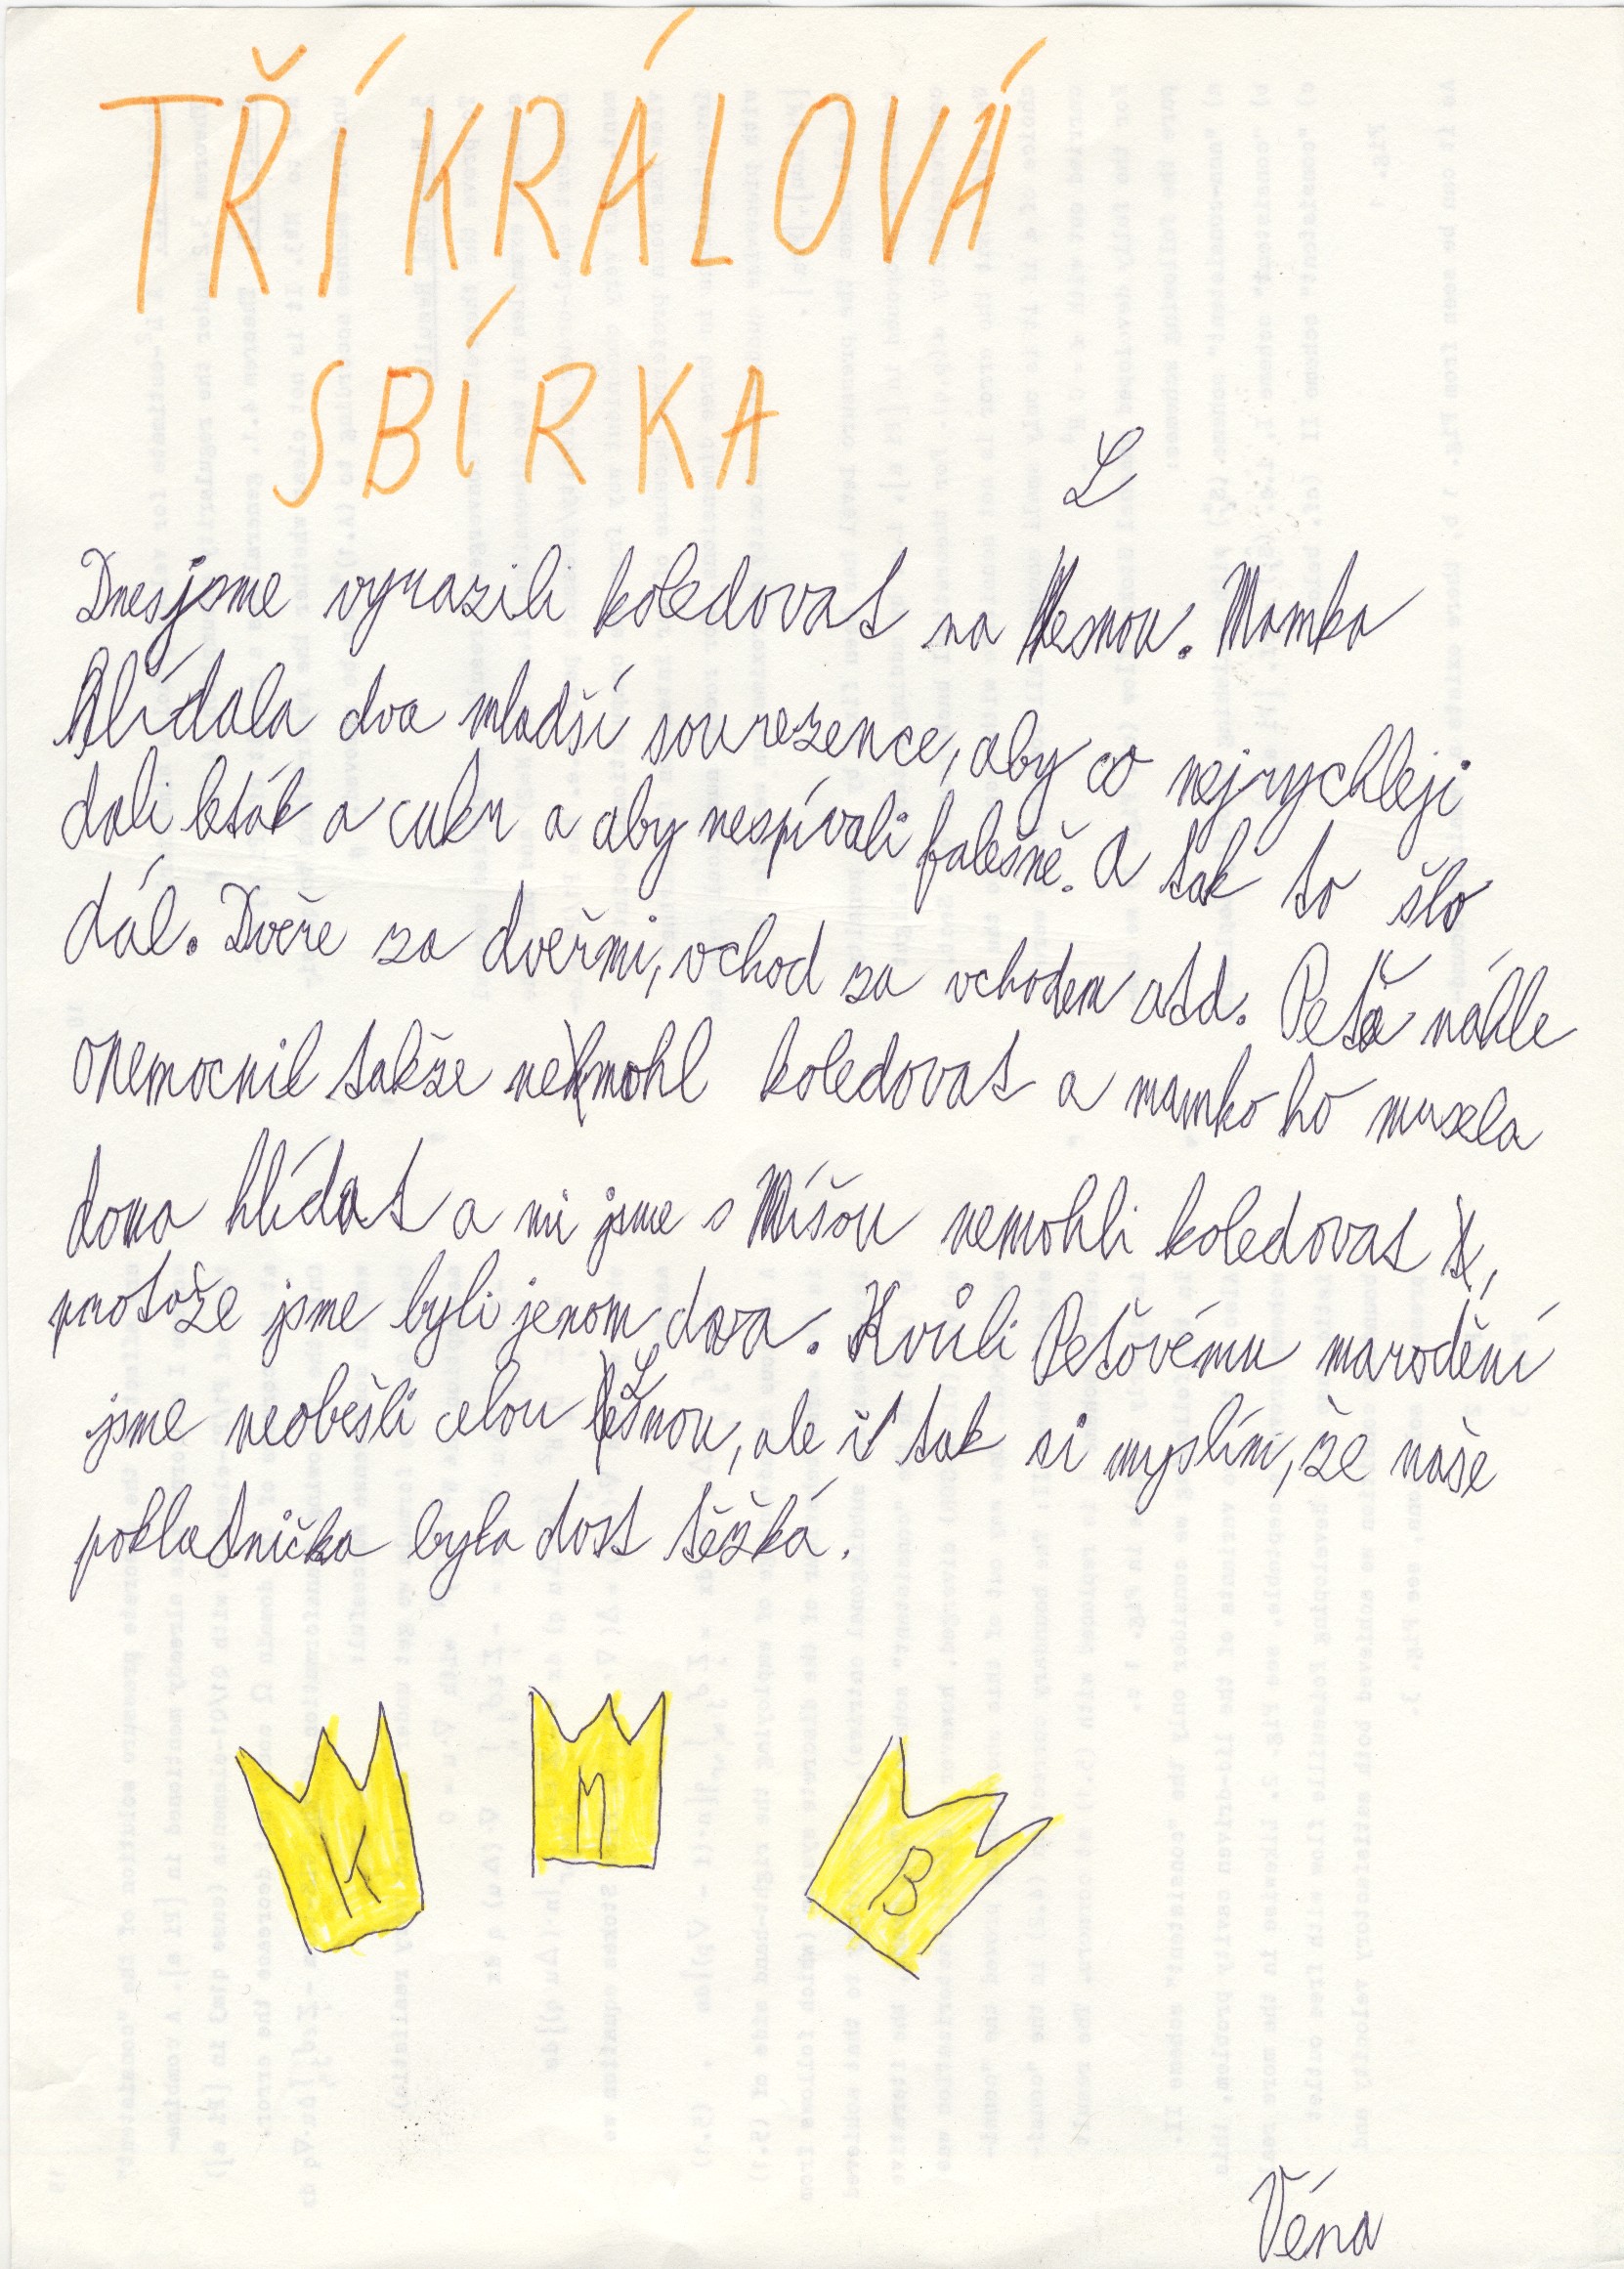 TŘÍKRÁLOVÁ
SBÍRKA
L
Dnes jsme vyrazili koledovat na Lesnou. Mamka
hlídala dva mladší sourezence, aby co nejrychleji
dali leták a cukr a aby nespívali falešně. A tak to šlo
dál. Dvěře za dveřmi, vchod za vchodem atd. Peťa náhle
onemocnil takže nemohl koledovat a mamka ho musela
doma hlídat a mi jsme s Míšou nemohli koledovat,
protože jsme byli jenom dva. Kvůli Peťovému marodění
jsme neobešli celou Lesnou, ale i tak si myslím, že naše
pokladnička byla dost těžká.
K M B
Véna